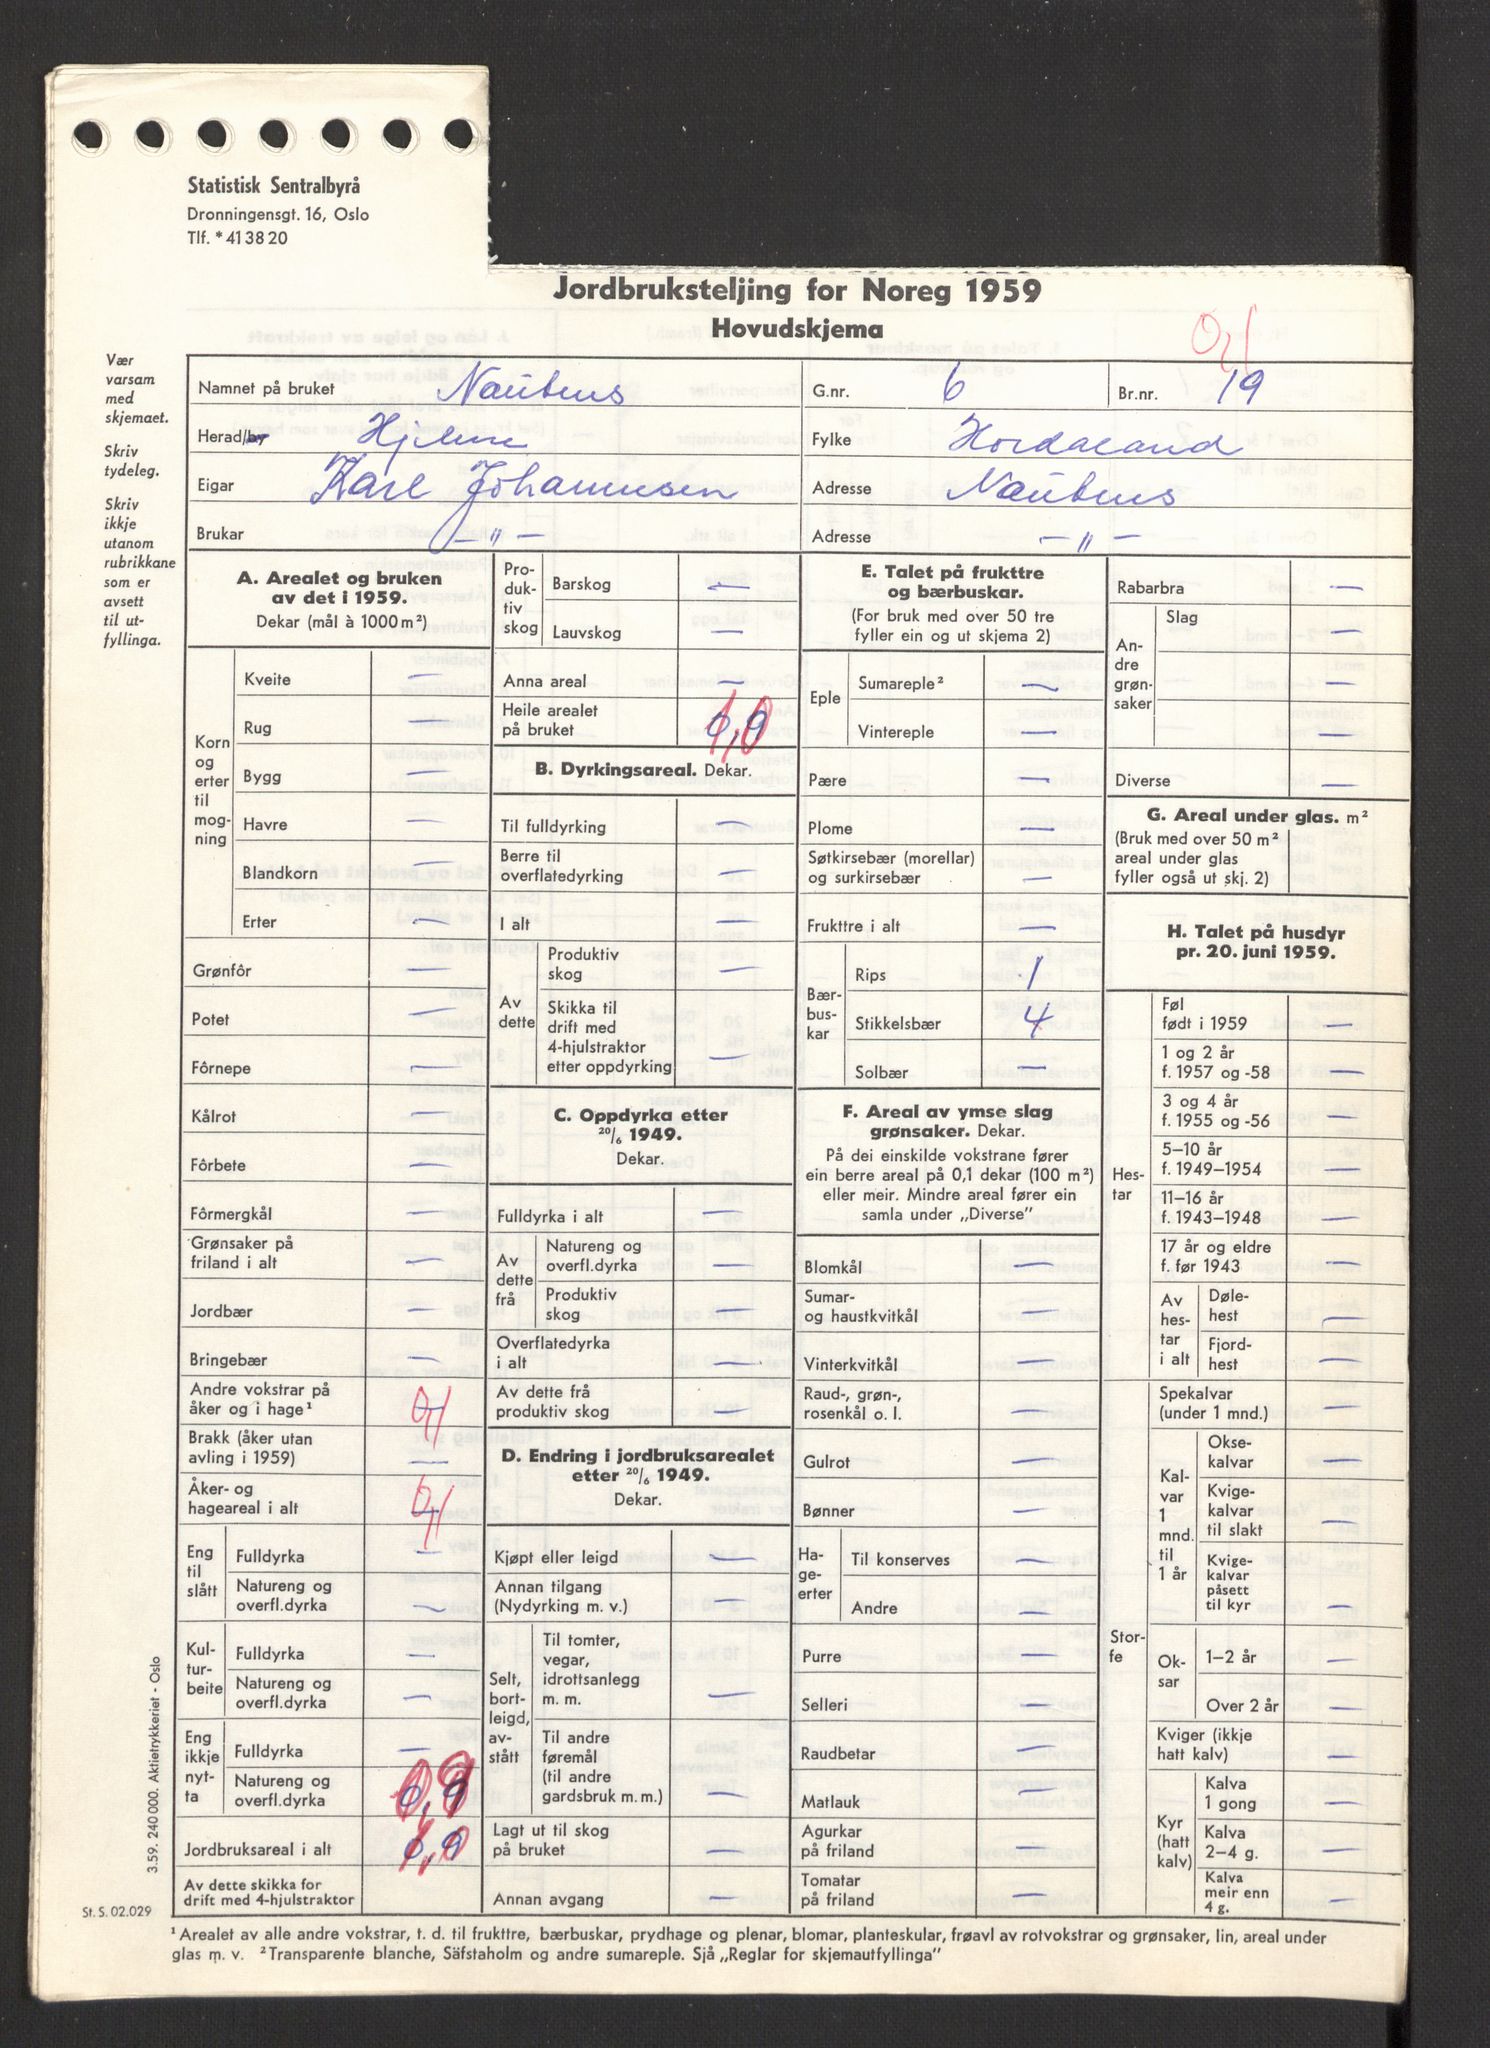 Statistisk Sentralbyrå
Dronningensgt. 16, Oslo
Tlf. *41 38 20
Jordbruksteljing for Noreg 1959
Hovudskjema
0,1
Vær
varsam
med
skjemaet.
Skriv
tydeleg.
Skriv
ikkje
utanom
rubrikkane
som er
avsett
til ut-
fyllinga.
Namnet på bruket Naubens G.nr. 6 Br.nr. 19
Herad/by Hjelme Fylke Hordaland
Eigar Karl Johannesen Adresse Naubens
Brukar — " — Adresse — " —
A. Arealet og bruken
av det i 1959.
Dekar (mål à 1000 m²)
Korn
og
erter
til
mog-
ning
Kveite —
Rug —
Bygg —
Havre —
Blandkorn —
Erter —
Grønfôr —
Potet —
Fôrnepe —
Kålrot —
Fôrbete —
Fôrmergkål —
Grønsaker på
friland i alt —
Jordbær —
Bringebær —
Andre vokstrar på
åker og i hage¹ — 0,1
Brakk (åker utan
avling i 1959) —
Åker- og
hageareal i alt — 0,1
Eng
til
slått
Fulldyrka —
Natureng og
overfl.dyrka —
Kul-
tur-
beite
Fulldyrka —
Natureng og
overfl.dyrka —
Eng
ikkje
nyt-
ta
Fulldyrka —
Natureng og
overfl.dyrka 0,9
Jordbruksareal i alt 0,9 1,0
Av dette skikka for
drift med 4-hjulstraktor
Pro-
duk-
tiv
skog
Barskog —
Lauvskog —
Anna areal —
Heile arealet
på bruket 0,9 1,0
B. Dyrkingsareal. Dekar.
Til fulldyrking —
Berre til
overflatedyrking —
I alt —
Av
dette
Produktiv
skog —
Skikka til
drift med
4-hjulstraktor
etter oppdyrking —
C. Oppdyrka etter
20/6 1949.
Dekar.
Fulldyrka i alt —
Av
dette
frå
Natureng og
overfl.dyrka —
Produktiv
skog —
Overflatedyrka
i alt —
Av dette frå
produktiv skog —
D. Endring i jordbruksarealet
etter 20/6 1949.
Dekar.
Kjøpt eller leigd —
Annan tilgang
(Nydyrking m. v.) —
Selt,
bort-
leigd,
av-
stått
Til tomter,
vegar,
idrottsanlegg
m. m. —
Til andre
føremål
(til andre
gardsbruk m. m.) —
Lagt ut til skog
på bruket —
Annan avgang —
E. Talet på frukttre
og bærbuskar.
(For bruk med over 50 tre
fyller ein og ut skjema 2)
Eple
Sumareple² —
Vintereple —
Pære —
Plome —
Søtkirsebær (morellar)
og surkirsebær —
Frukttre i alt —
Bær-
bus-
kar
Rips 1
Stikkelsbær 4
Solbær —
F. Areal av ymse slag
grønsaker. Dekar.
På dei einskilde vokstrane fører
ein berre areal på 0,1 dekar (100 m²)
eller meir. Mindre areal fører ein
samla under „Diverse”
Blomkål —
Sumar-
og haustkvitkål —
Vinterkvitkål —
Raud-, grøn-,
rosenkål o. l. —
Gulrot —
Bønner —
Ha-
ge-
erter
Til konserves —
Andre —
Purre —
Selleri —
Raudbetar —
Matlauk —
Agurkar
på friland —
Tomatar
på friland —
Rabarbra —
An-
dre
grøn-
saker
Slag —
—
—
Diverse —
G. Areal under glas. m²
(Bruk med over 50 m²
areal under glas
fyller også ut skj. 2)
H. Talet på husdyr
pr. 20. juni 1959.
Hes-
tar
Føl
født i 1959 —
1 og 2 år
f. 1957 og -58 —
3 og 4 år
f. 1955 og -56 —
5–10 år
f. 1949–1954 —
11–16 år
f. 1943–1948 —
17 år og eldre
f. før 1943 —
Av
hes-
tar
i alt
Døle-
hest —
Fjord-
hest —
Stor-
fe
Spekalvar
(under 1 mnd.) —
Kal-
var
1
mnd.
til
1 år
Okse-
kalvar —
Kvige-
kalvar
til slakt —
Kvige-
kalvar
påsett
til kyr —
Ok-
sar
1–2 år —
Over 2 år —
Kviger (ikkje
hatt kalv) —
Kyr
(hatt
kalv)
Kalva
1 gong —
Kalva
2–4 g. —
Kalva
meir enn
4 g. —
3.59. 240 000. Aktietrykkeriet - Oslo
St. S. 02.029
¹ Arealet av alle andre vokstrar, t. d. til frukttre, bærbuskar, prydhage og plenar, blomar, planteskular, frøavl av rotvokstrar og grønsaker, lin, areal under
glas m. v. ² Transparente blanche, Säfstaholm og andre sumareple. Sjå „Reglar for skjemautfyllinga”